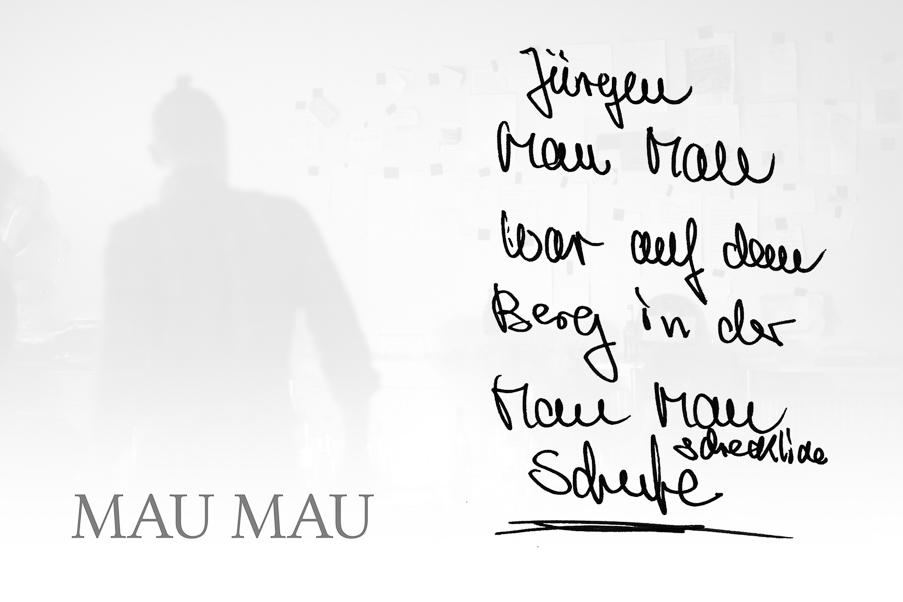 Jürgen
Mau Mau
war auf dem
Berg in der
Mau Mau
schrecklide
Schule
MAU MAU